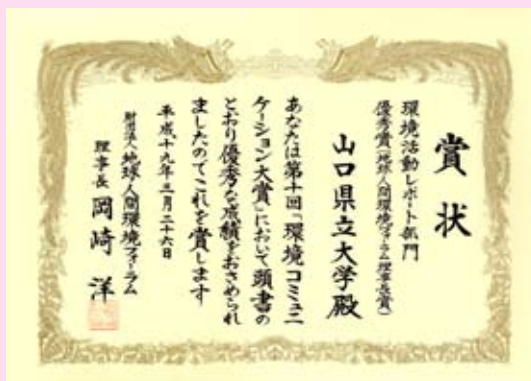 賞状
環境活動レポート部門
優秀賞(地球・人間環境フォーラム理事長賞)
山口県立大学殿
あなたは第十回「環境コミュニ
ケーション大賞」において頭書の
とおり優秀な成績をおさめられ
ましたのでこれを賞します
平成十九年三月二十六日
財団法人 地球・人間環境フォーラム
理事長 岡崎 洋